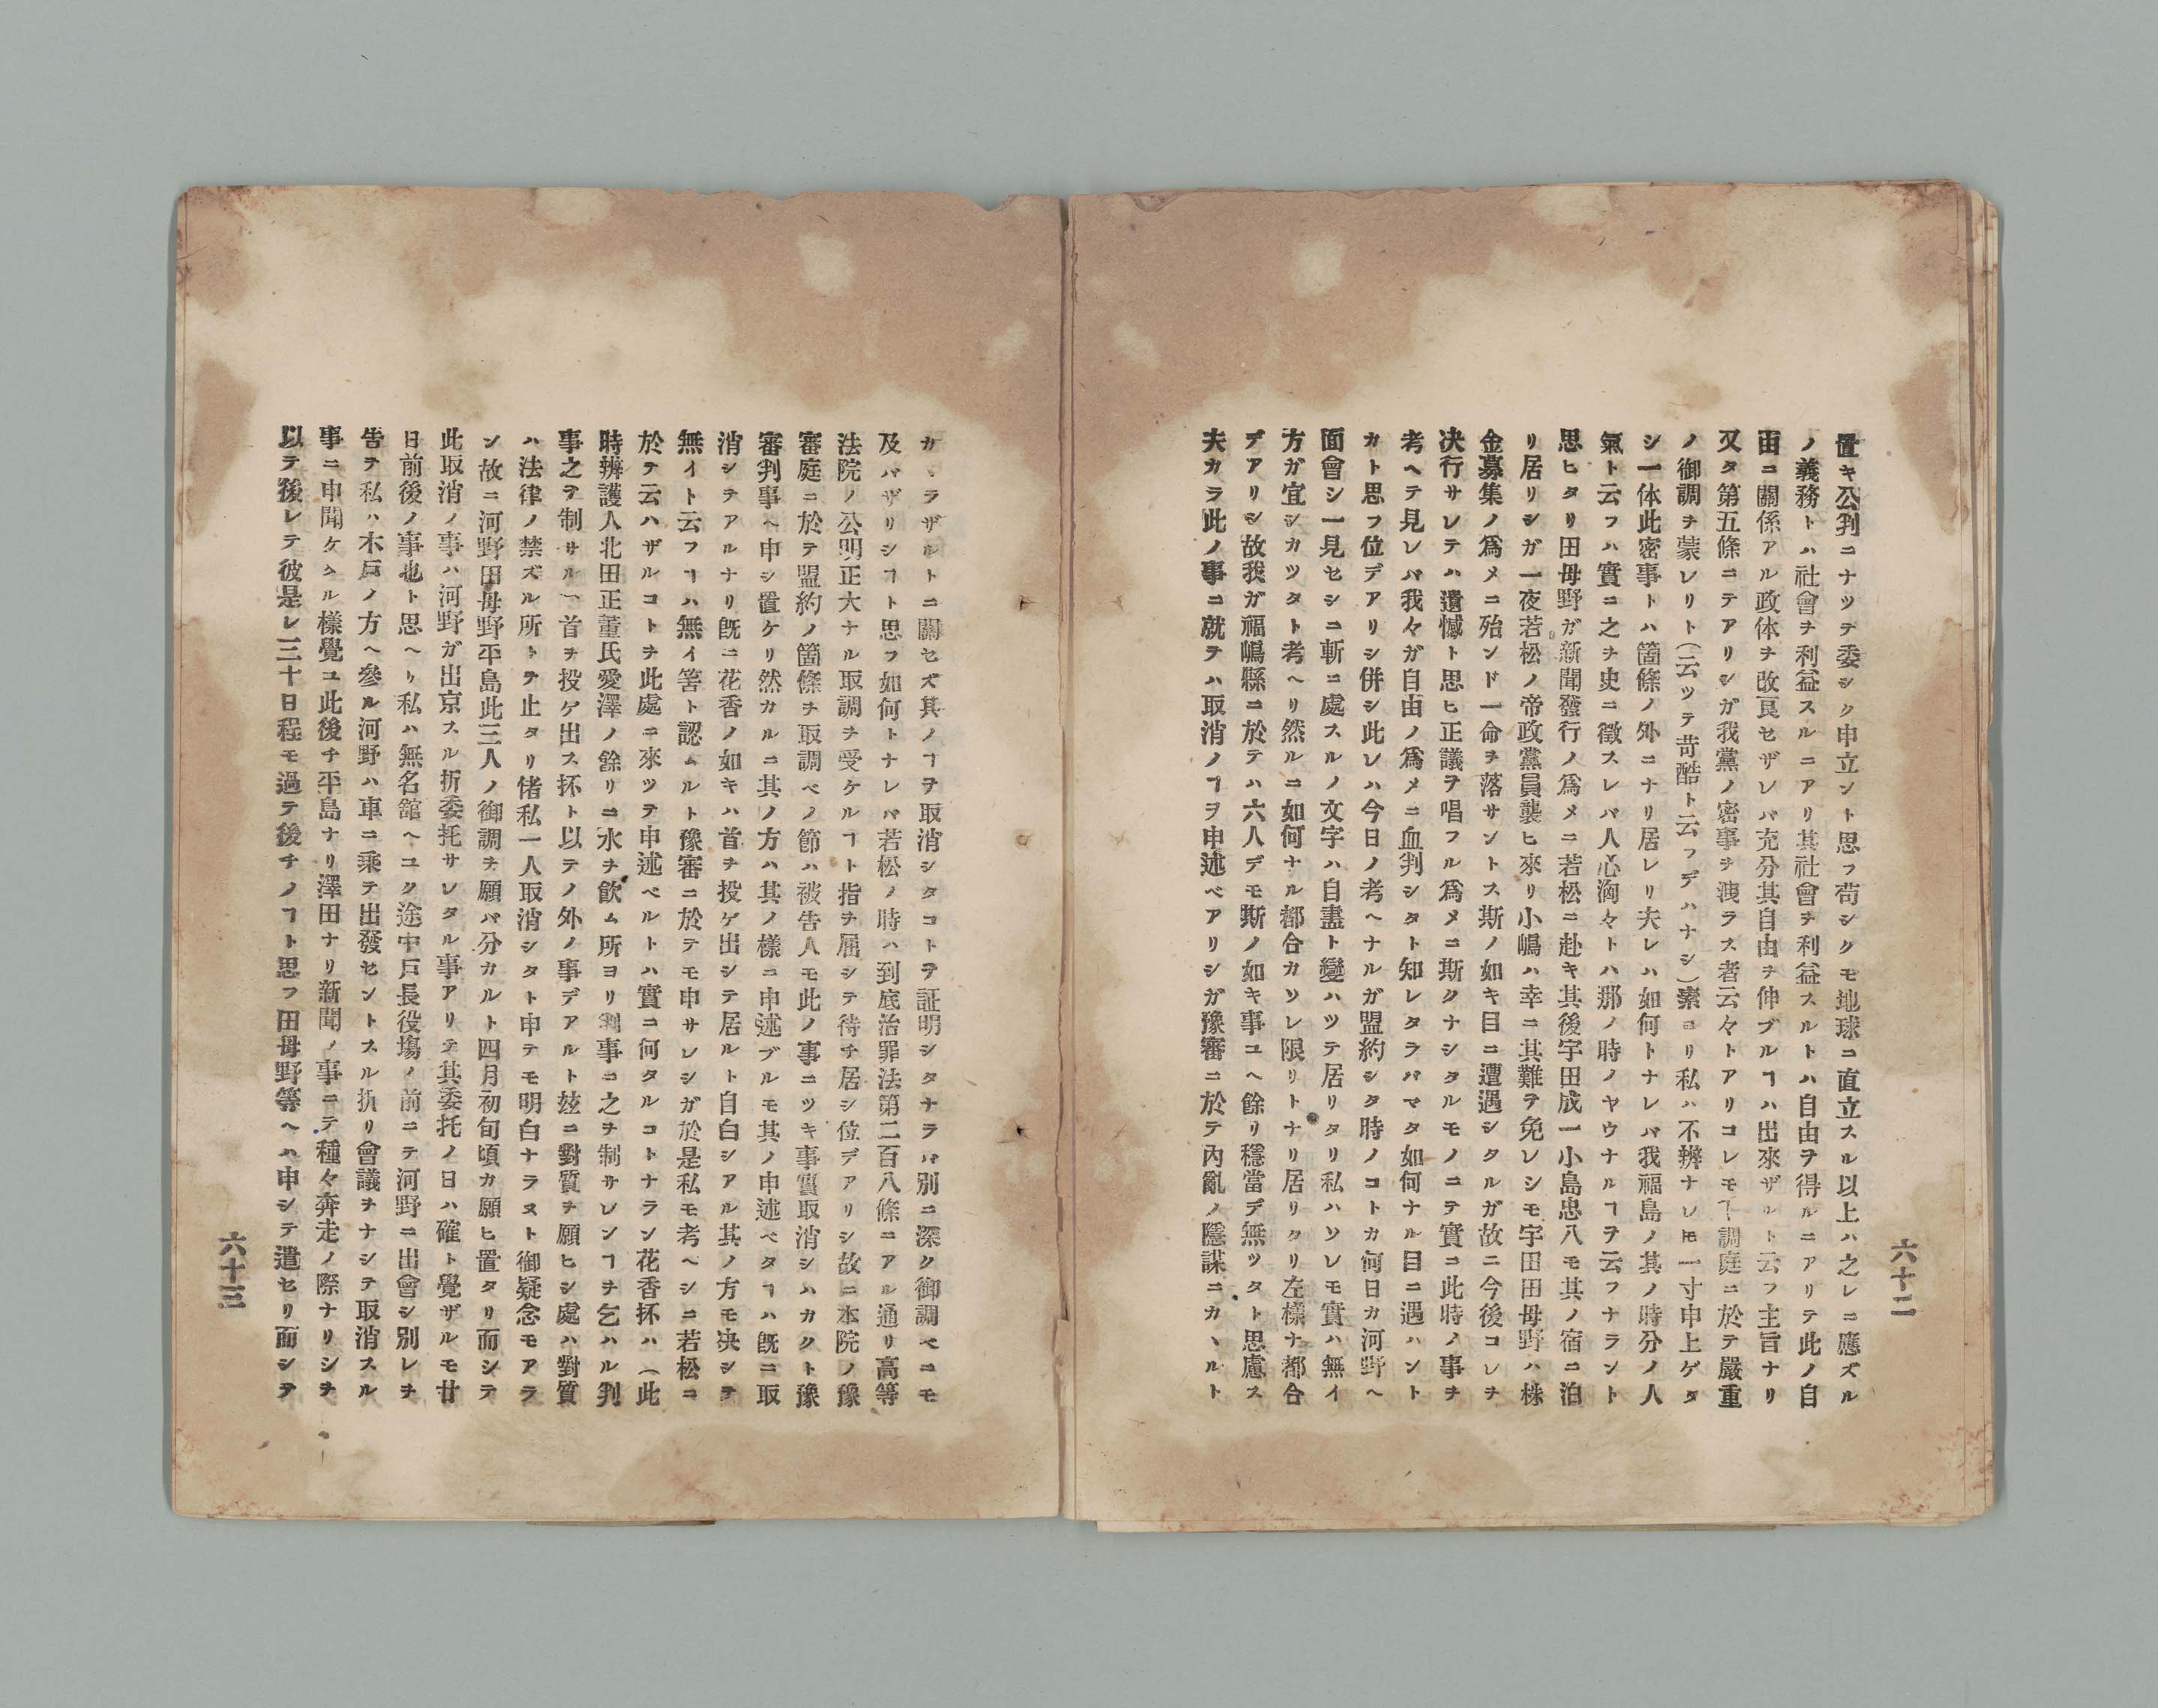 置キ公判ニナツテ委シク申立ント思フ苟シクモ地球ニ直立スル以上ハ之レニ應ズル
ノ義務トハ社會ヲ利益スルニアリ其社會ヲ利益スルトハ自由ヲ得ルニアリテ此ノ自
由ニ關係アル政体ヲ改良セザレバ充分其自由ヲ伸ブルヿハ出來ザルト云フ主旨ナリ
又タ第五條ニテアリシガ我黨ノ密事ヲ洩ラス者云々トアリコレモ下調庭ニ於テ嚴重
ノ御調ヲ蒙レリト(云ツテ苛酷ト云フデハナシ)素ヨリ私ハ不辨ナレ𪜈一寸申上ゲタ
シ一体此密事トハ箇條ノ外ニナリ居レリ夫レハ如何トナレバ我福島ノ其ノ時分ノ人
氣ト云フハ實ニ之ヲ史ニ徵スレバ人心洶々トハ那ノ時ノヤウナルヿヲ云フナラント
思ヒタリ田母野ガ新聞發行ノ爲メニ若松ニ赴キ其後宇田成一小島忠八モ其ノ宿ニ泊
リ居リシガ一夜若松ノ帝政黨員襲ヒ來リ小嶋ハ幸ニ其難ヲ免レシモ宇田田母野ハ株
金募集ノ爲メニ殆ンド一命ヲ落サントス斯ノ如キ目ニ遭遇シタルガ故ニ今後コレヲ
决行サレテハ遺憾ト思ヒ正議ヲ唱フル爲メニ斯クナシタルモノニテ實ニ此時ノ事ヲ
考ヘテ見レバ我々ガ自由ノ爲メニ血判シタト知レタラバマタ如何ナル目ニ遇ハント
カト思フ位デアリシ併シ此レハ今日ノ考ヘナルガ盟約シタ時ノコトカ何日カ河野ヘ
面會シ一見セシニ斬ニ處スルノ文字ハ自盡ト變ハツテ居リタリ私ハソレモ實ハ無イ
方ガ宜シカツタト考ヘリ然ルニ如何ナル都合カソレ限リトナリ居リタリ左樣ナ都合
デアリシ故我ガ福嶋縣ニ於テハ六人デモ斯ノ如キ事ユヘ餘リ穩當デ無ツタト思慮ス
夫カラ此ノ事ニ就テハ取消ノヿヲ申述ベアリシガ豫審ニ於テ內亂ノ隱謀ニカヽルト
六十二
カヽラザルトニ關セズ其ノヿヲ取消シタコトヲ証明シタナラバ別ニ深ク御調ベニモ
及バザリシヿト思フ如何トナレバ若松ノ時ハ到底治罪法第二百八條ニアル通リ高等
法院ノ公明正大ナル取調ヲ受ケルヿト指ヲ屈シテ待チ居シ位デアリシ故ニ本院ノ豫
審庭ニ於テ盟約ノ箇條ヲ取調ベノ節ハ被告人モ此ノ事ニツキ事實取消シハカクト豫
審判事ヘ申シ置ケリ然カルニ其ノ方ハ其ノ樣ニ申述ブルモ其ノ申述ベタヿハ旣ニ取
消シテアルナリ旣ニ花香ノ如キハ首ヲ投ゲ出シテ居ルト自白シアル其ノ方モ决シテ
無イト云フヿハ無イ筈ト認ムルト豫審ニ於テモ申サレシガ於是私モ考ヘシニ若松ニ
於テ云ハザルコトヲ此處ニ來ツテ申述ベルトハ實ニ何タルコトナラン花香抔ハ(此
時辨護人北田正董氏愛澤ノ餘リニ水ヲ飮ム所ヨリ判事ニ之ヲ制サレンヿヲ乞ハル判
事之ヲ制サル)首ヲ投ゲ出ス抔ト以テノ外ノ事デアルト玆ニ對質ヲ願ヒシ處ハ對質
ハ法律ノ禁ズル所トテ止タリ偖私一人取消シタト申テモ明白ナラヌト御疑念モアラ
ン故ニ河野田母野平島此三人ノ御調ヲ願バ分カルト四月初旬頃カ願ヒ置タリ而シテ
此取消ノ事ハ河野ガ出京スル折委托サレタル事アリテ其委托ノ日ハ確ト覺ザルモ廿
日前後ノ事也ト思ヘリ私ハ無名舘ヘユク途中戶長役塲ノ前ニテ河野ニ出會シ別レヲ
吿テ私ハ木戶ノ方ヘ參ル河野ハ車ニ乘テ出發セントスル折リ會議ヲナシテ取消スル
事ニ申聞ケタル樣覺ユ此後チ平島ナリ澤田ナリ新聞ノ事ニテ種々奔走ノ際ナリシヲ
以テ後レテ彼是レ二三十日程モ過テ後チノヿト思フ田母野等ヘハ申シテ遣セリ而シテ
六十三